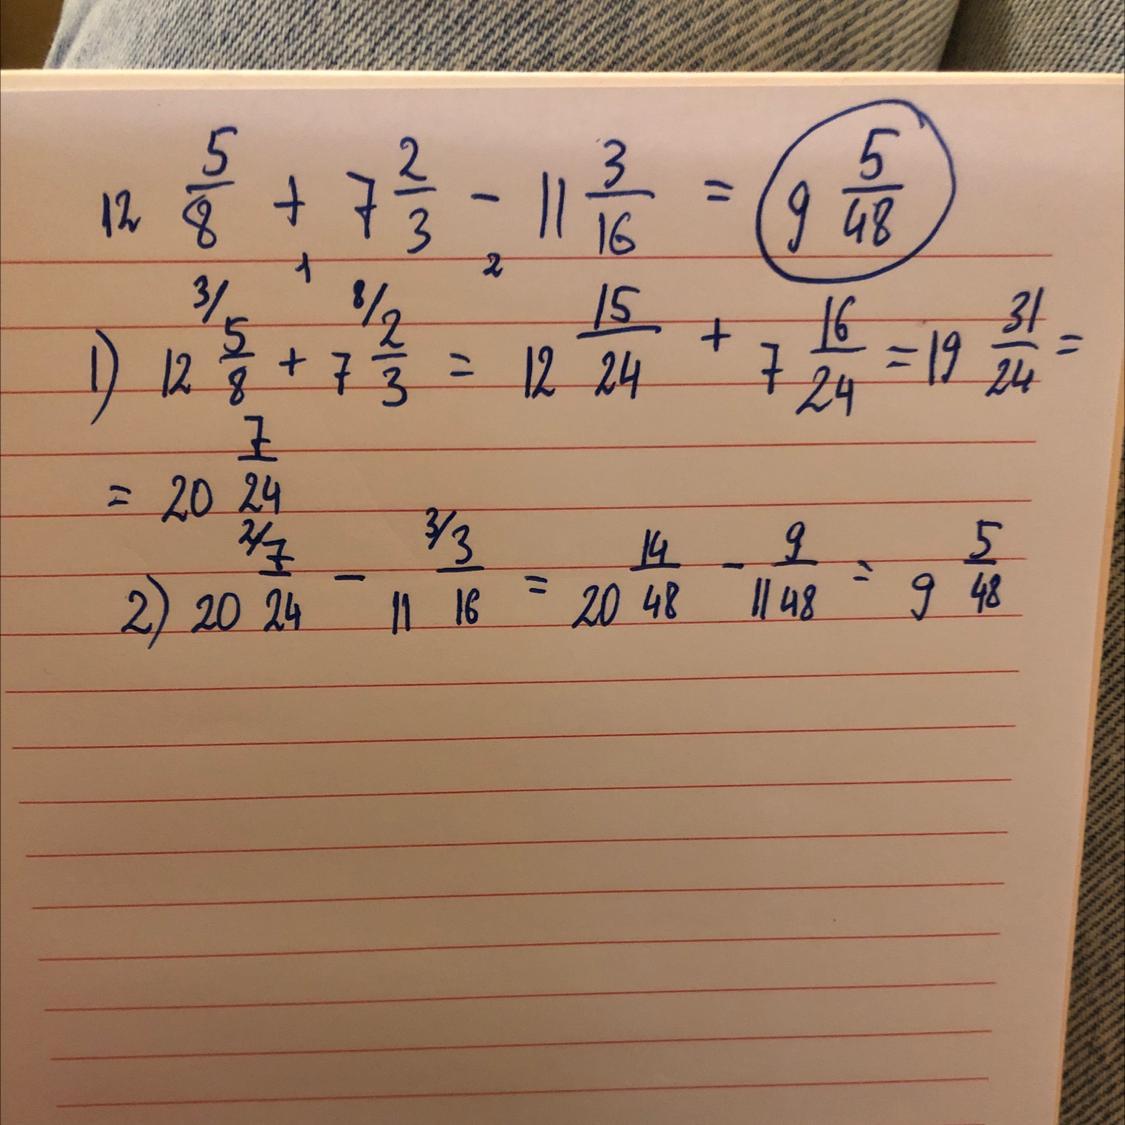 12 5/8 + 7 2/3 - 11 3/16 = 9 5/48
1 2
1) 12 3/ 5/8 + 7 8/ 2/3 = 12 15/24 + 7 16/24 = 19 31/24 =
= 20 7/24
2) 20 2/ 7/24 - 11 3/ 3/16 = 20 14/48 - 11 9/48 = 9 5/48